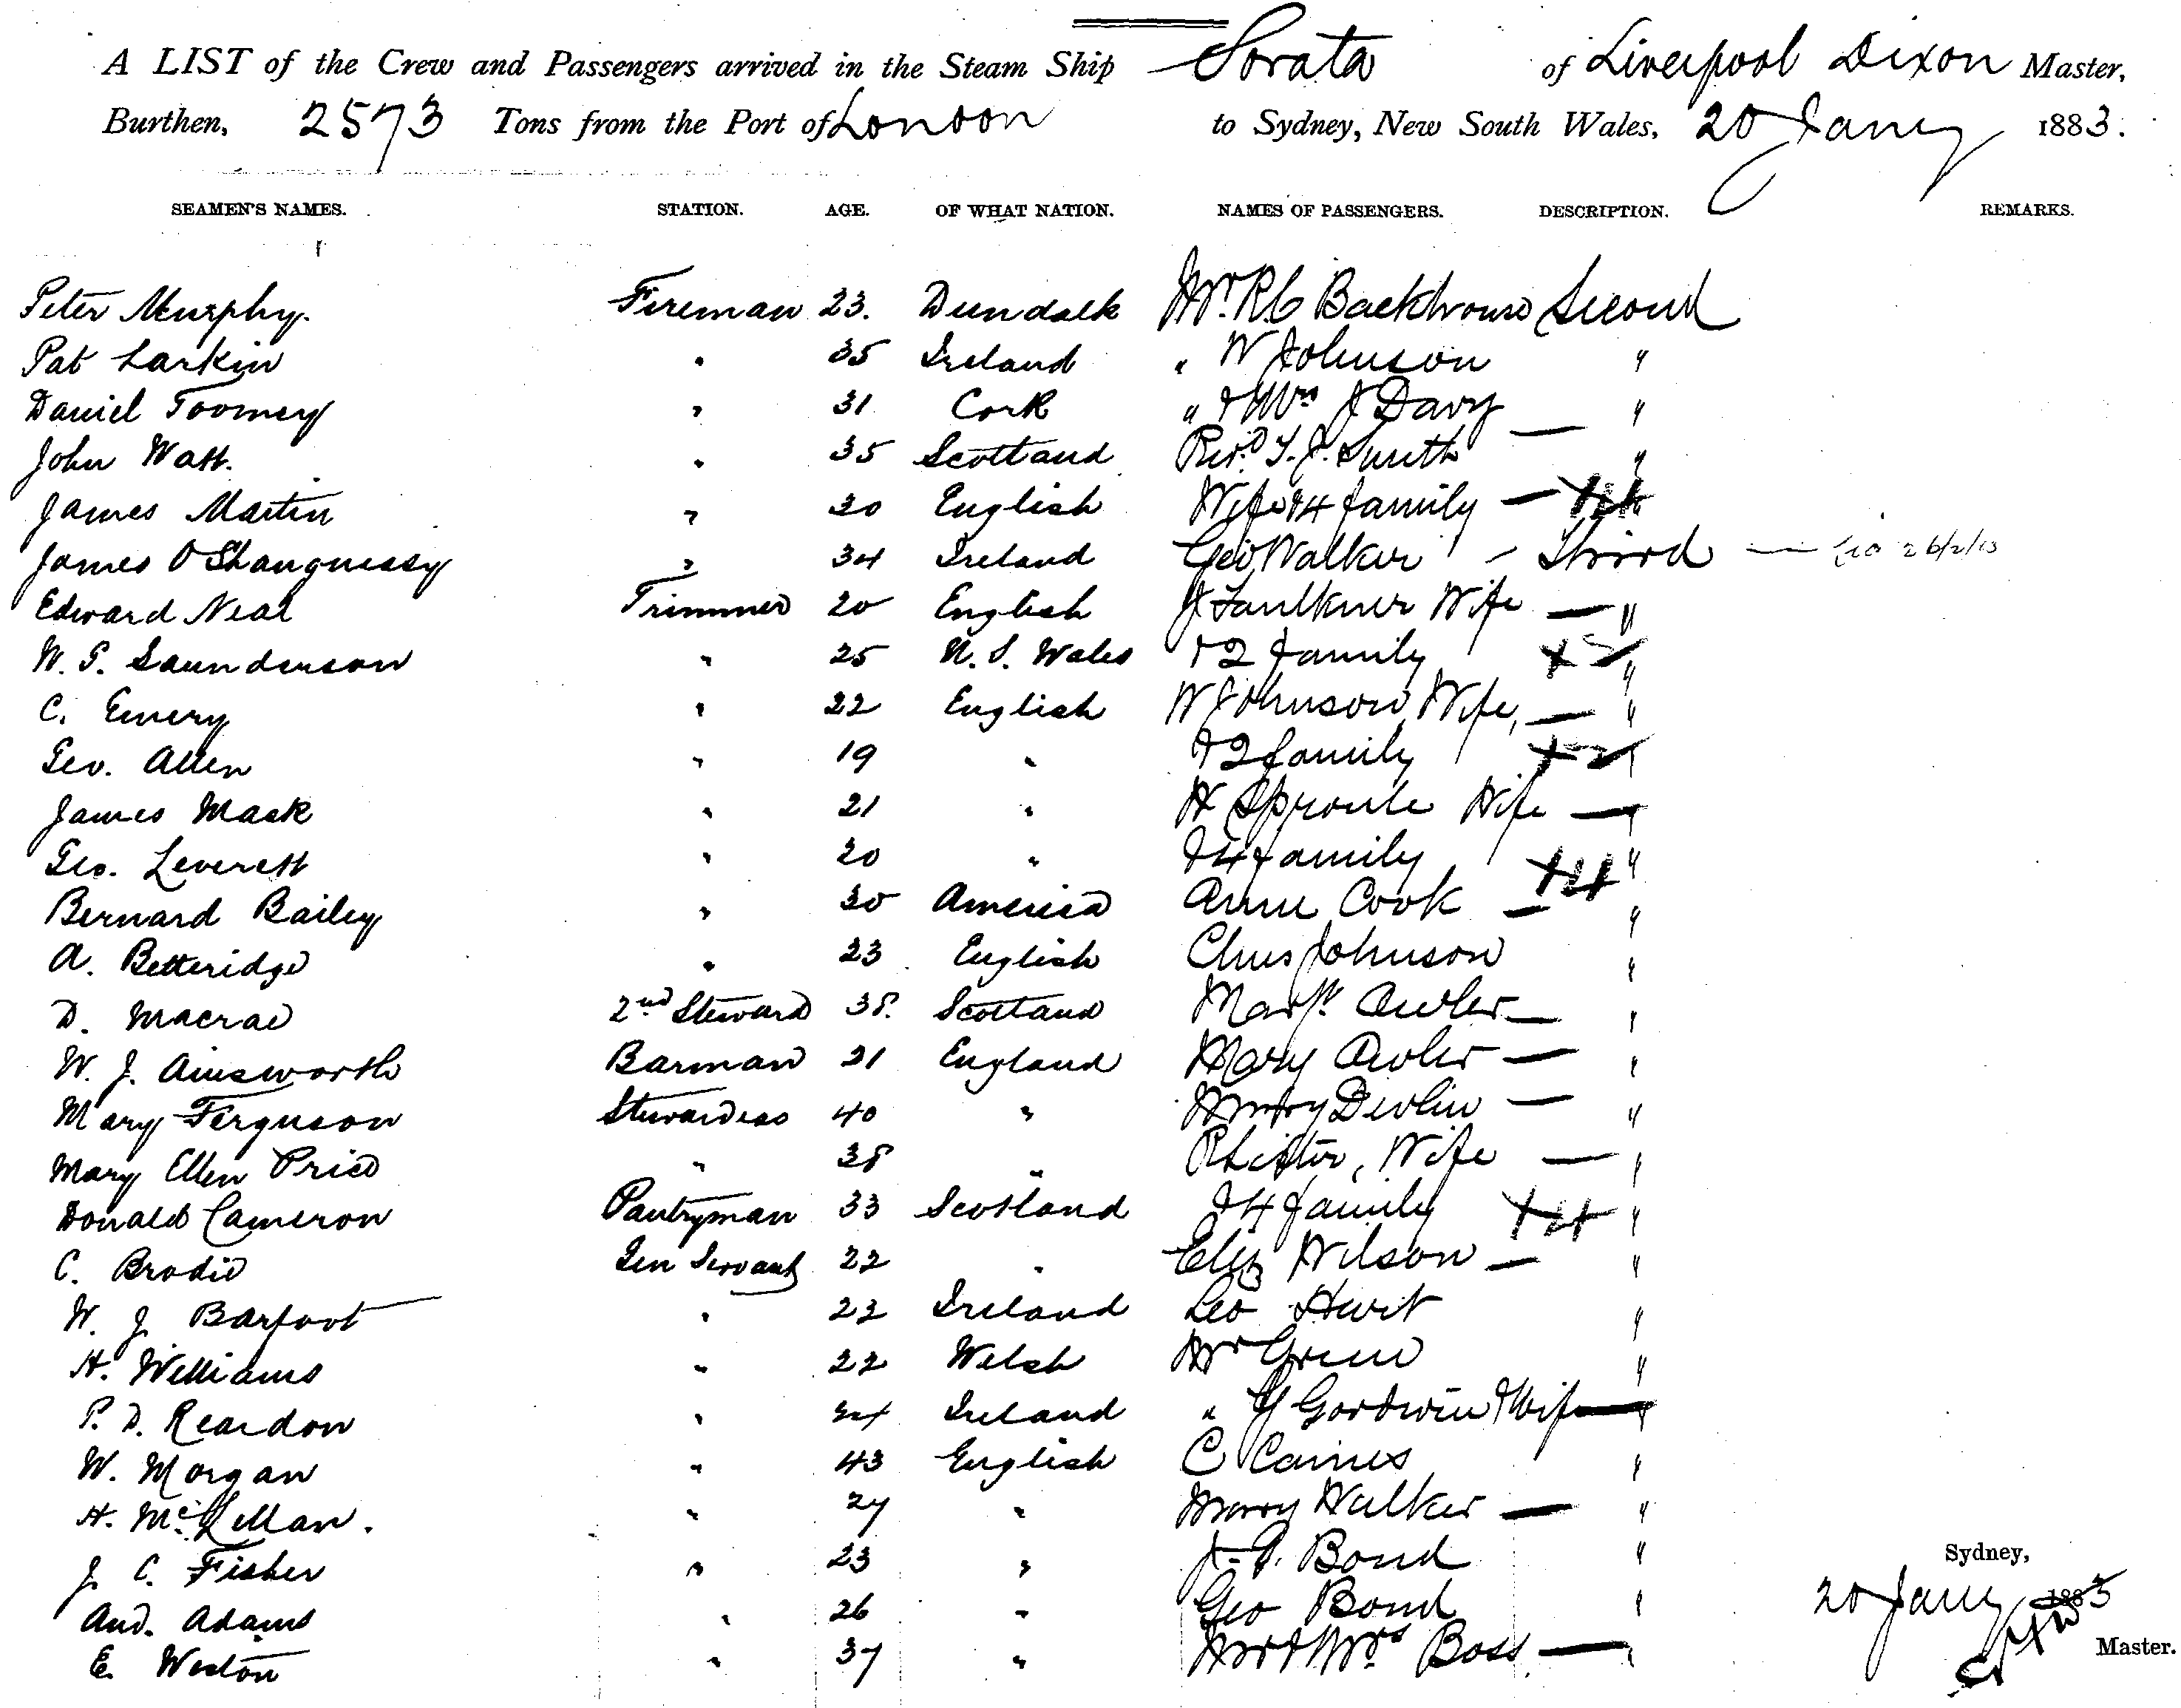 A LIST of the Crew and Passengers arrived in the Steam Ship Sorata of Liverpool Dixon Master,
Burthen, 2573 Tons from the Port of London to Sydney, New South Wales, 20 Jany 1883.
SEAMEN'S NAMES. STATION. AGE. OF WHAT NATION. NAMES OF PASSENGERS. DESCRIPTION. REMARKS.
Peter Murphy. Fireman 23. Dundalk Mr. R C Backhouse Second
Pat Larkin " 35 Ireland " W Johnson "
Daniel Toomey " 31 Cork " & Mrs J Davy — "
John Watt. " 35 Scotland Revd. T. J. Smith "
James Martin " 30 English Wife & 4 family —
James O'Shaugnessy " 34 Ireland Geo Walker - Third —
Edward Neal Trimmer 20 English J Faulkner Wife — "
W. S. Saunderson " 25 N. S. Wales & 2 family "
C. Emery " 22 English W Johnson, Wife, — "
Geo. Allen " 19 " & 2 family "
James Mack " 21 " H Sproule Wife — "
Geo. Leverett " 20 " & 4 family "
Bernard Bailey " 30 America Annie Cook — "
A. Betteridge " 23 English Chas Johnson "
D. Macrae 2nd Steward 38. Scotland Margt. Awler — "
W. J. Ainsworth Barman 21 England Mary Awler — "
Mary Ferguson Stewardess 40 " Devlin — "
Mary Ellen Price " 38 " R Lister, Wife — "
Donald Cameron Pantryman 33 Scotland & 4 family "
C. Brodie Gen Servant 22 " Eliz Wilson — "
W. J. Barfoot " 22 Ireland Leo Hurt "
H. Williams " 22 Welsh Mr Green "
P. D. Reardon " 24 Ireland " G Goodwin & Wife — "
W. Morgan " 43 English C Caines "
H. McLellan. " 27 " Mary Walker — "
J. C. Fisher " 23 " J. A. Bond "
And. Adams " 26 " Geo Bond "
E. Weston " 37 " Mr & Mrs Boss — "
Sydney,
20 Jany 1883
Master.